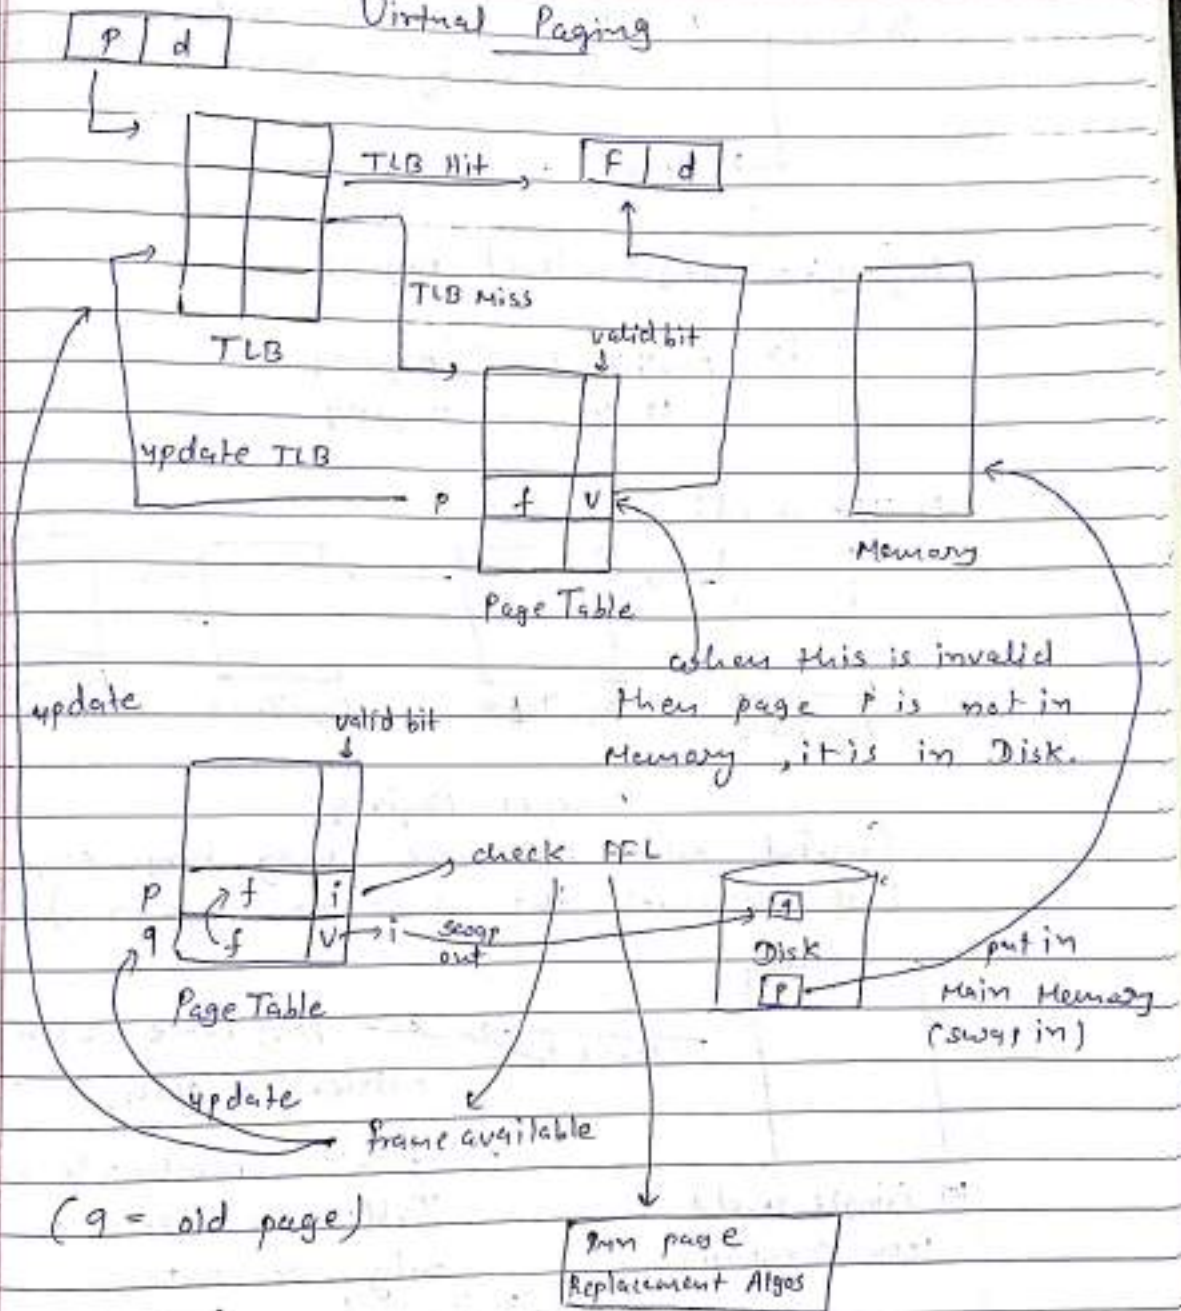 Virtual Paging
p d
TLB Hit
F d
TLB Miss
TLB
valid bit
update TLB
p f v
Memory
Page Table
when this is invalid
then page P is not in
Memory, it is in Disk.
update
valid bit
check FFL
p f i
q f v i swap out
q
Disk
p
put in
Main Memory
(swap in)
Page Table
update
frame available
(q = old page)
Run page
Replacement Algos